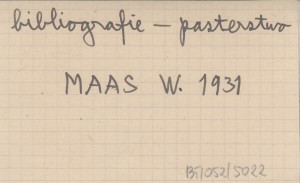 bibliografie — pasterstwo
MAAS W. 1931
BI/052/5022